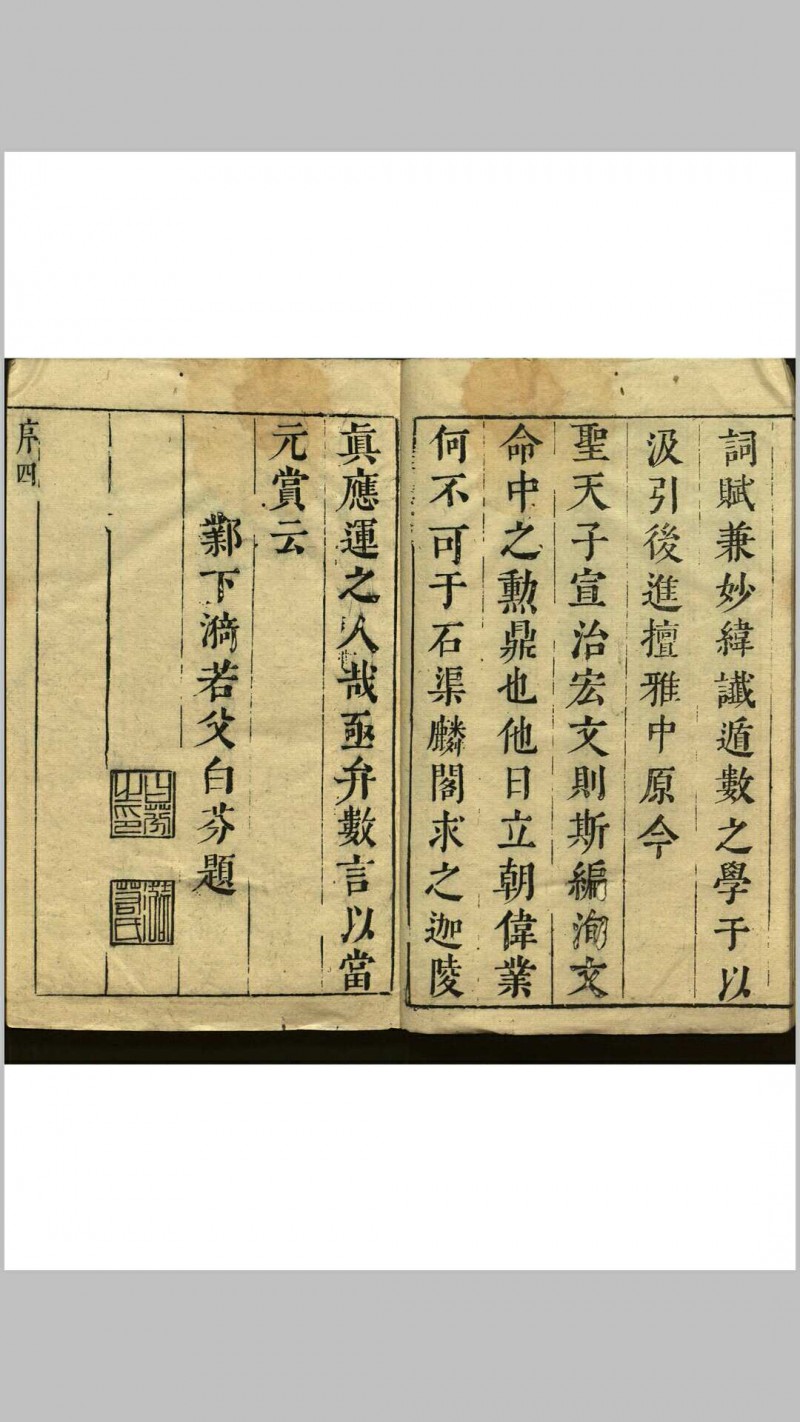 詞賦兼妙緯讖遁數之學于以
汲引後進擅雅中原今
聖天子宣治宏文則斯編洵文
命中之勲鼎也他日立朝偉業
何不可于石渠麟閣求之迦陵
眞應運之人哉亟弁數言以當
元賞云
鄴下漪若父白芬題
白芬之印
漪若氏
序四